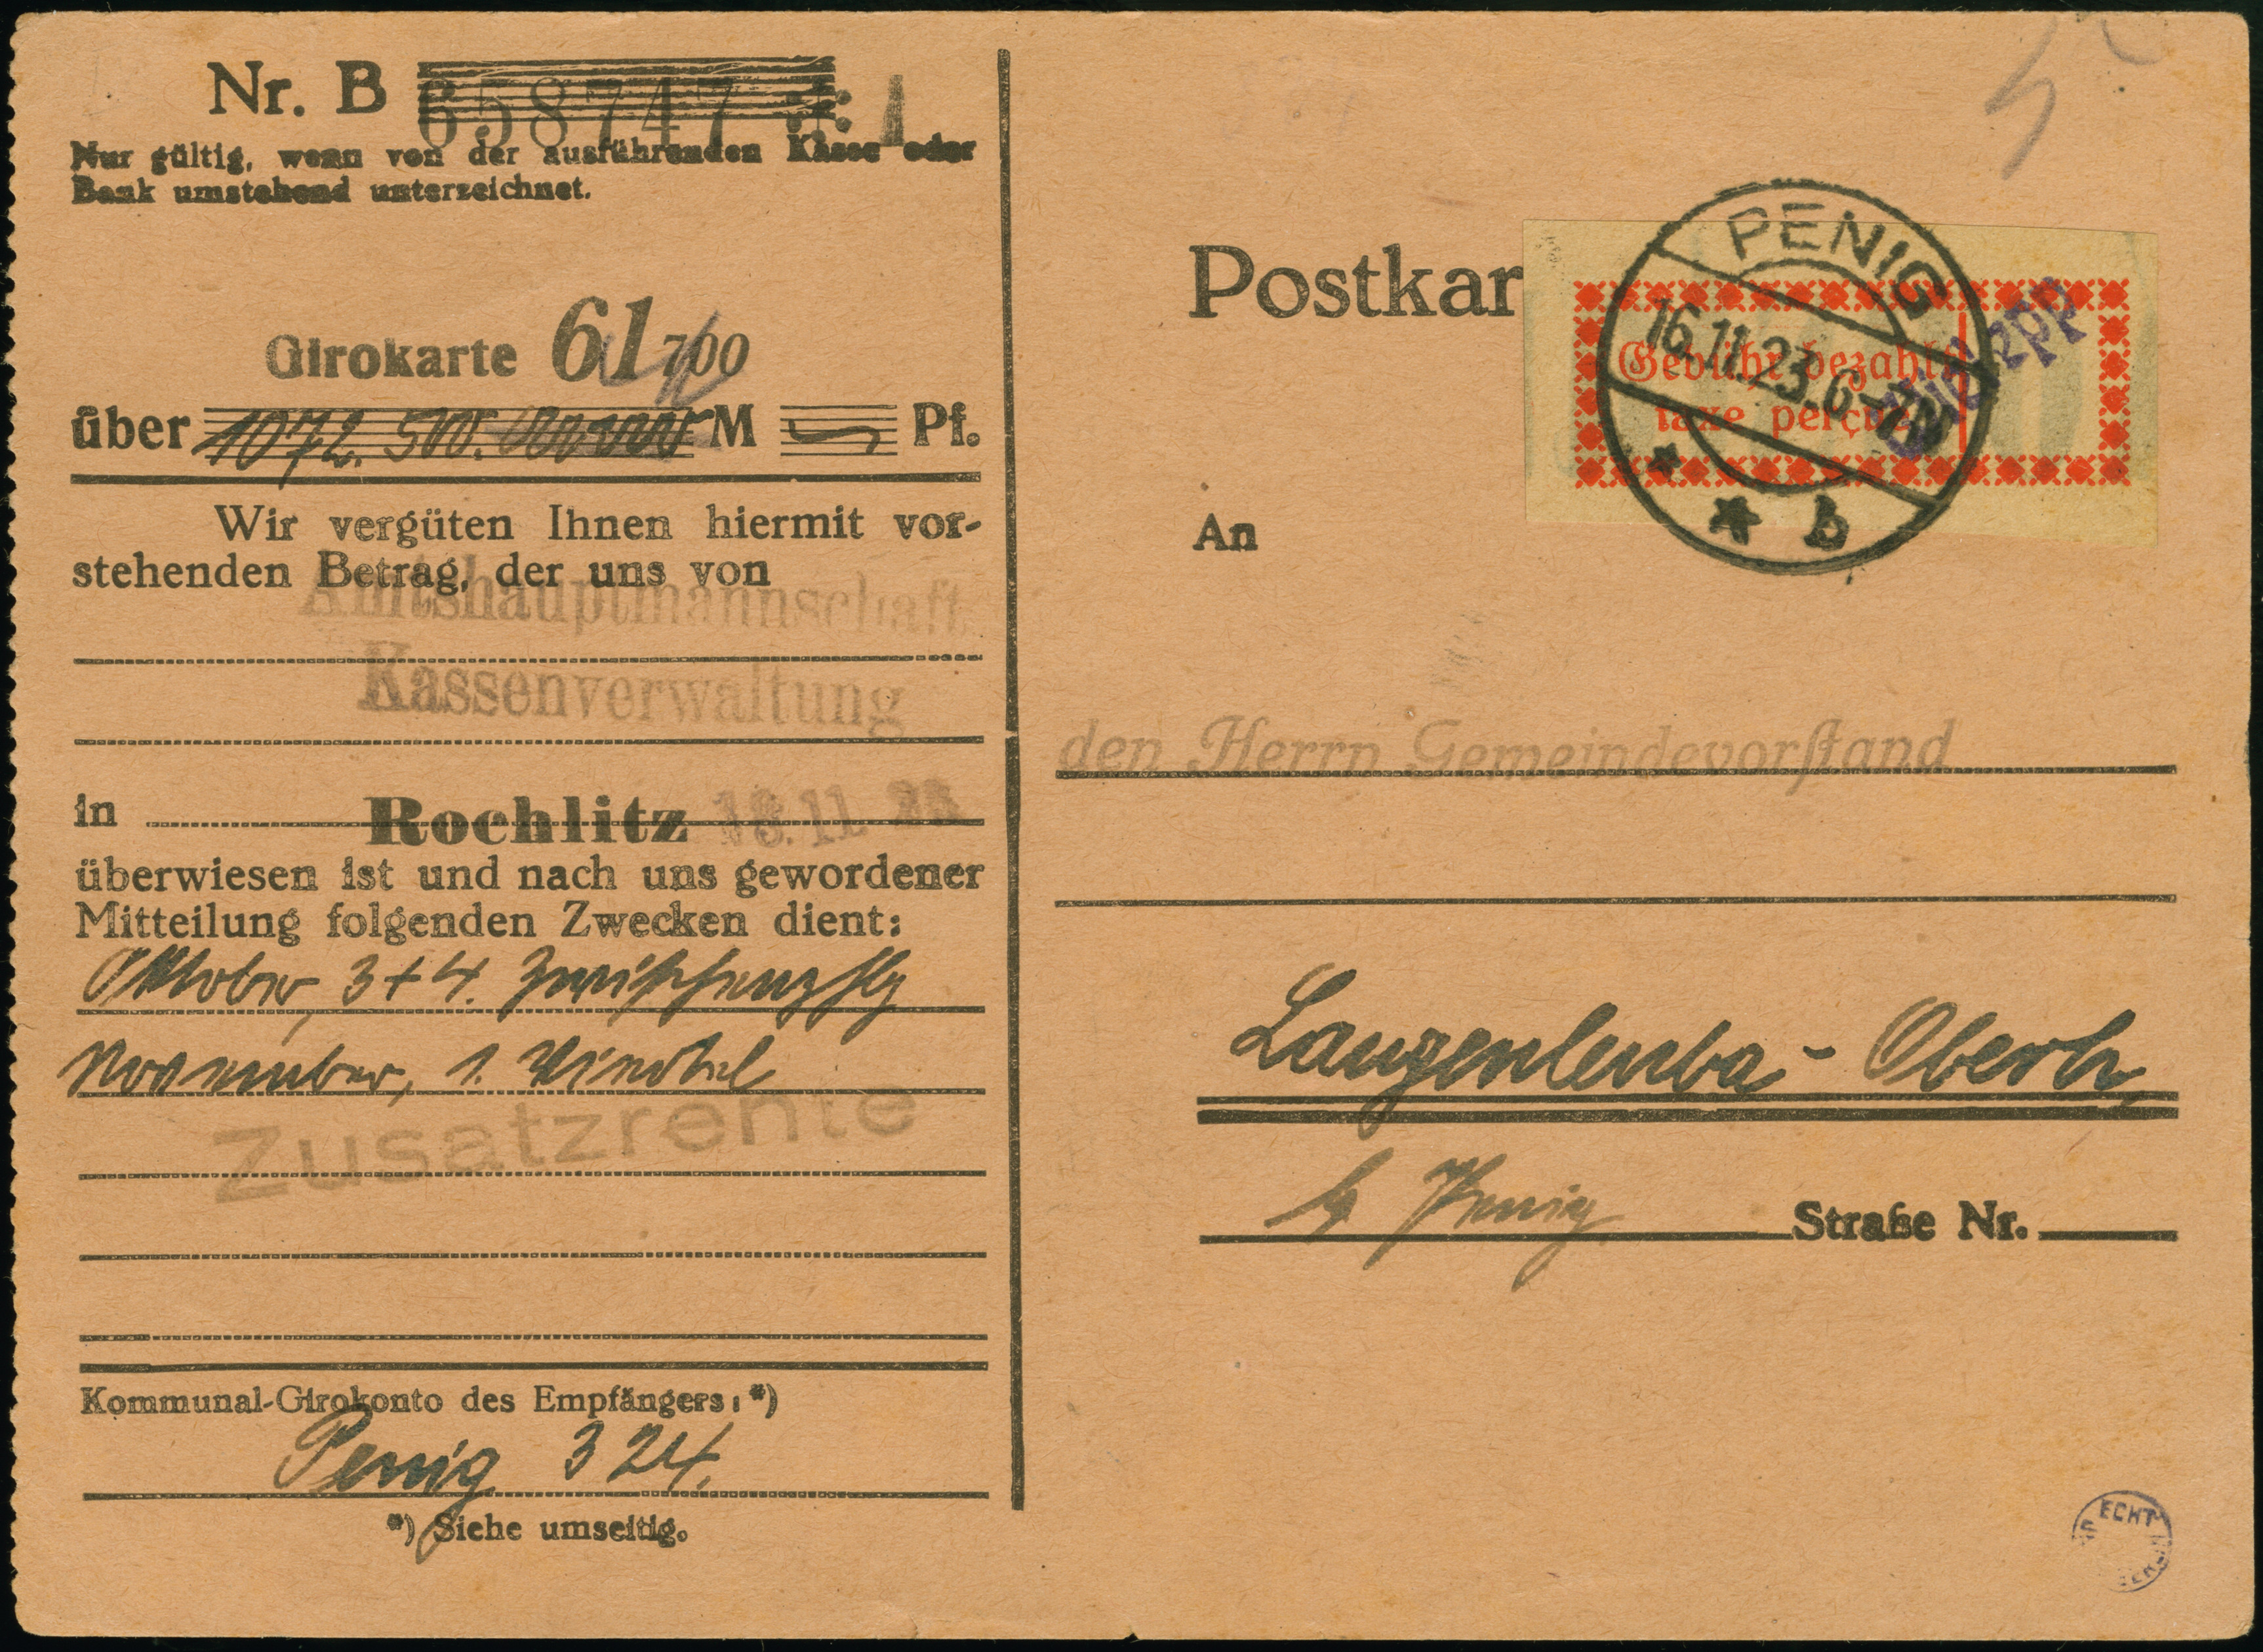 Nr. B 658747 * 1
Nur gültig, wenn von der ausführenden Kasse oder
Bank umstehend unterzeichnet.
Girokarte 61 700
über 1072. 500. 000 000 M Pf.
Wir vergüten Ihnen hiermit vor-
stehenden Betrag, der uns von
Amtshauptmannschaft
Kassenverwaltung
in Rochlitz 13. 11. 23
überwiesen ist und nach uns gewordener
Mitteilung folgenden Zwecken dient:
Oktober, 3 + 4.
November, 1. Viertel
Zusatzrente
Kommunal-Girokonto des Empfängers: *)
Penig 324.
*) Siehe umseitig.
Postkar
PENIG
16.11.23. 6-7N
* * b
Gebühr bezahlt
taxe perçue
An
den Herrn Gemeindevorstand
Langenleuba-Oberh.
b/ Penig Straße Nr.
ECHT